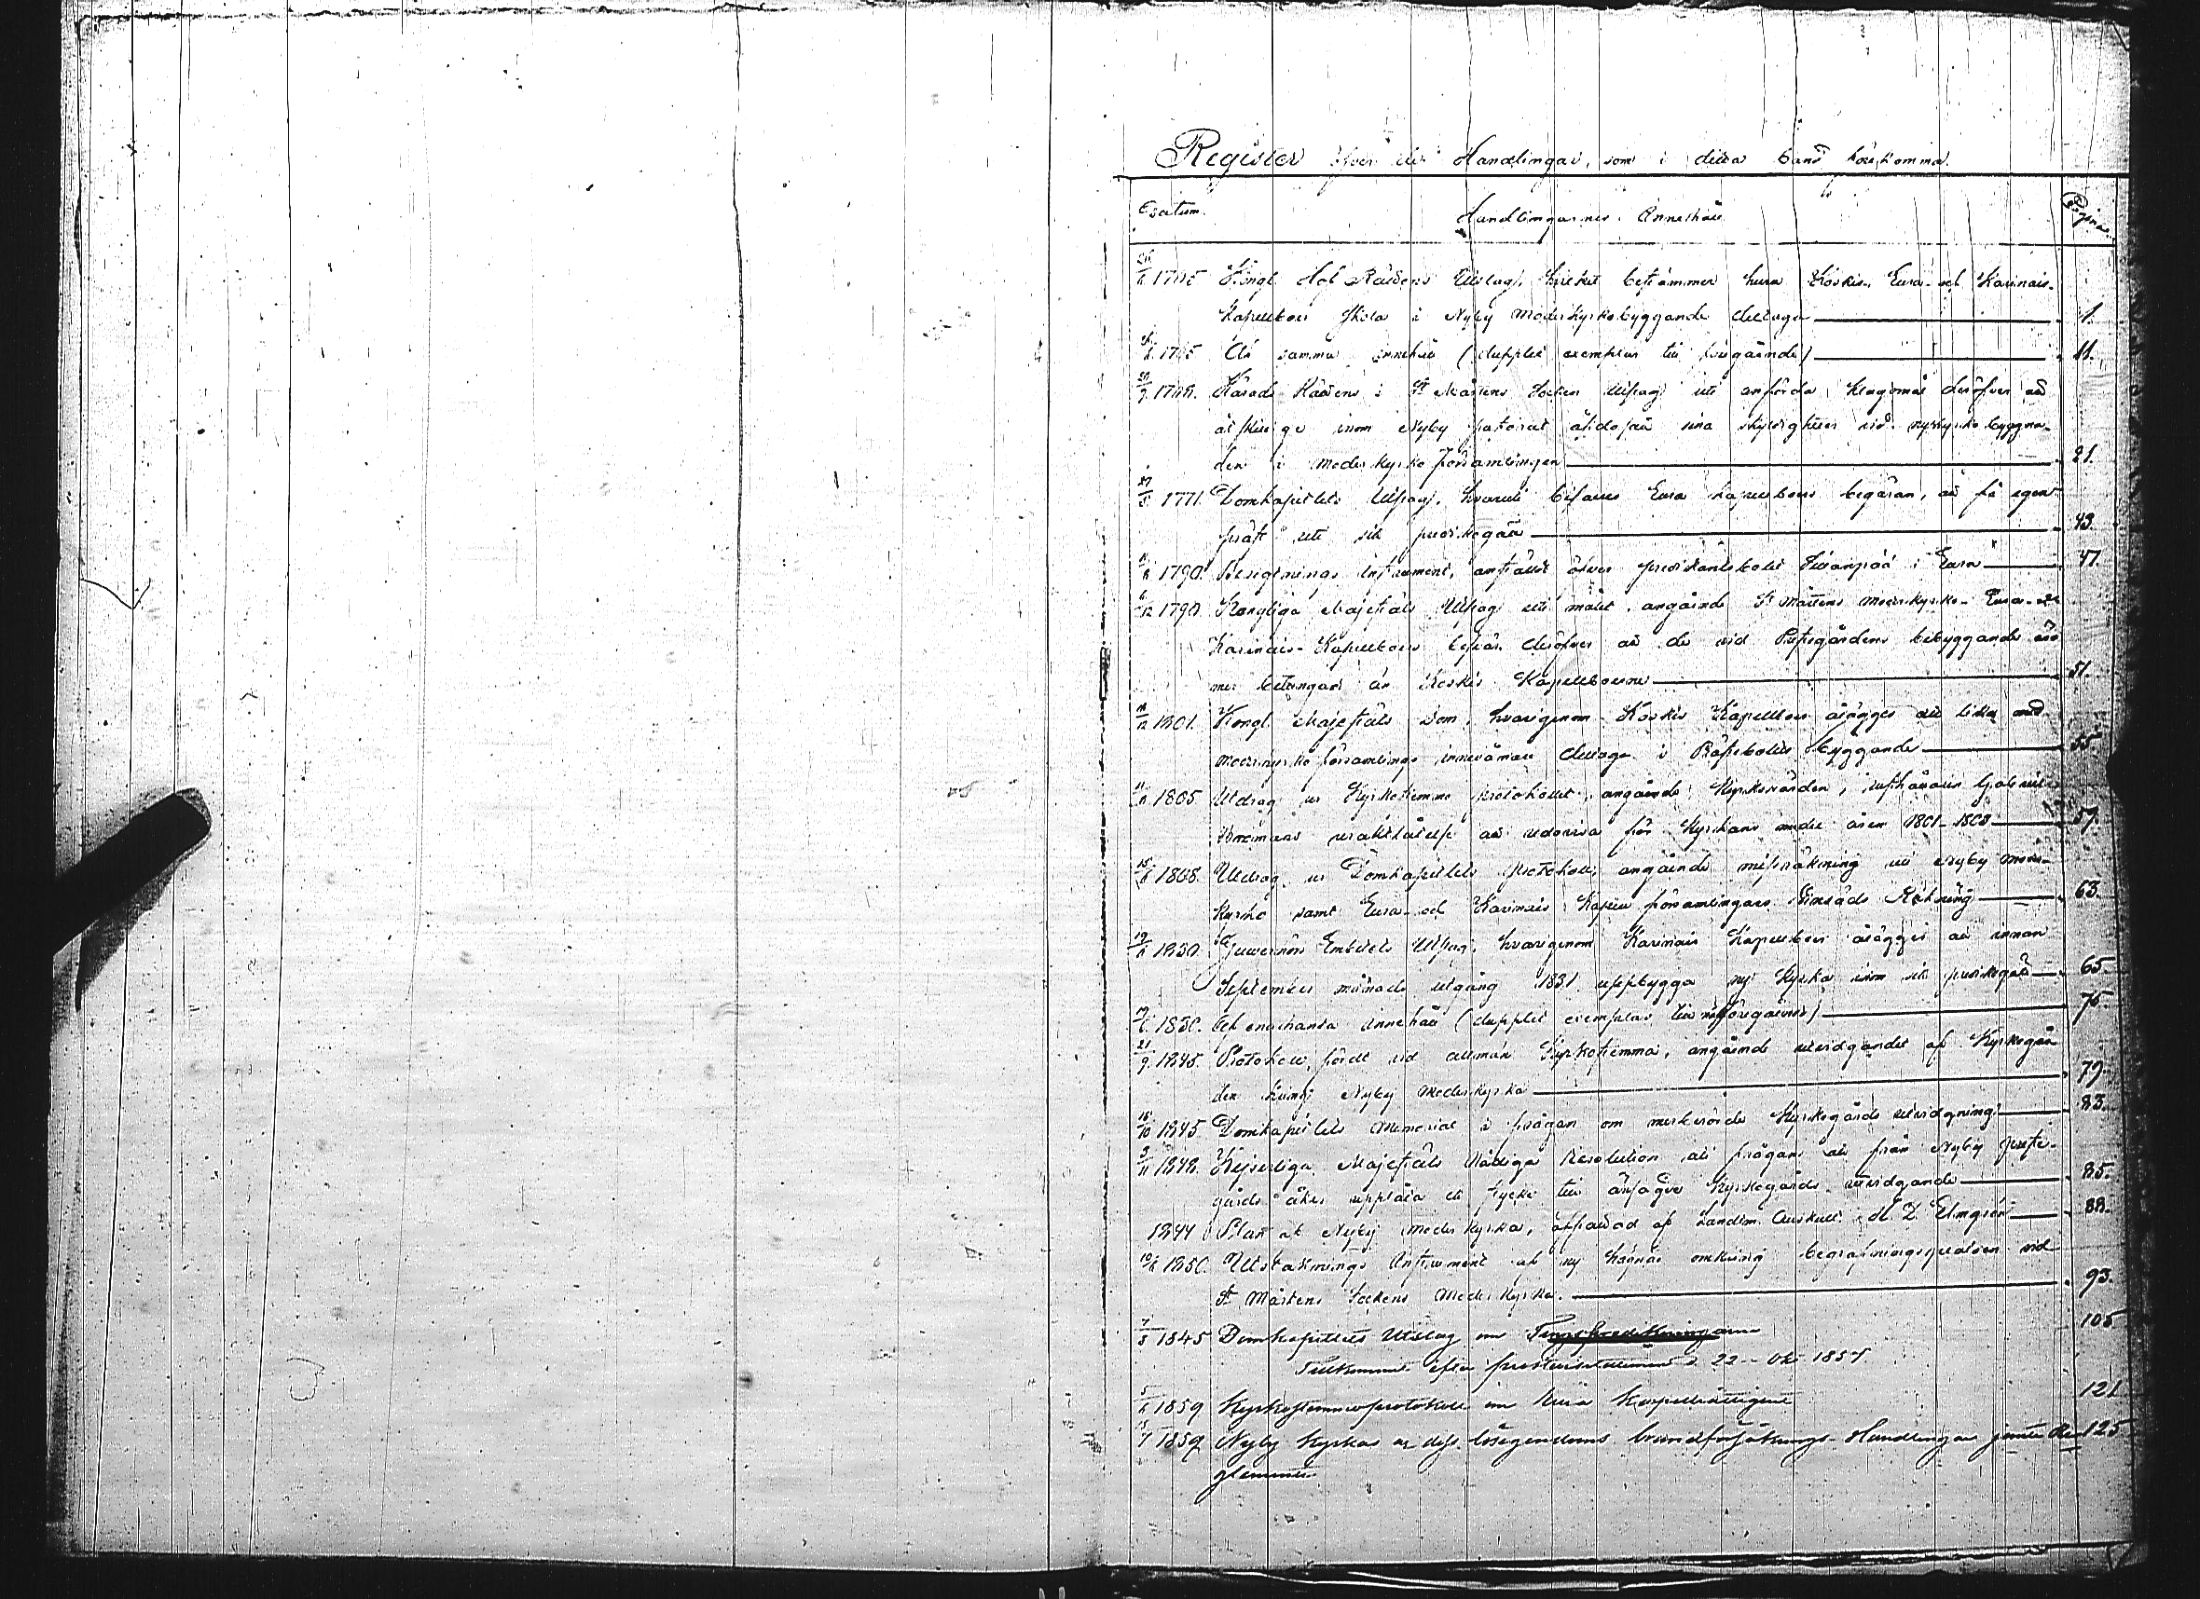 Register öfver de Handlingar, som i detta band förekomma.
Datum. Handlingarnes Innehåll Pagina
1765 Kongl. Hof Rättens Utslag, hvilket bestämmer huru Koskis, Eura och Karinais-
Kapellboer skola i Nyby Moderkyrkobyggande deltaga 1.
1765 Af samma innehåll (dupplet exemplar till föregående) 11.
Härads Rättens i St Mårtens Socken Utslag uti anförda klagomål deröfver att
åtskillige inom Nyby pastorat åsidosatt sina skyldigheter vid nykyrko byggna-
den i Moderkyrko församlingen 21.
27/5 1771. Domkapitlets Utslag, hvaruti bifalles Eura kapellboers begäran, att få egen
präst uti sitt prediкogäll 43.
1790. Besigtnings Instrument, anstäldt öfver predikantsbolet i Eura 47.
1790. Kongliga Majestäts Utslag uti målet angående St Mårtens Moderkyrko- Eura- och
Karinais-Kapellboers besvär deröfver att de vid Prestgårdens bebyggande äro
mer betungade än Koskis Kapellboerne 51.
1801. Kongl. Majestäts Dom, hvarigenom Koskis Kapellboer åläggas att lika med
Moderkyrko församlings innevånare deltaga i Prästbolets byggande 55
1805 Utdrag ur Kyrkostämmo Protokollet, angående Kyrkovärden,
uraktlåtelse att redovisa för Kyrkans medel åren 1801-1803 57.
15/6 1808. Utdrag ur Domkapitlets Protokoll, angående missräkning uti Nyby Moder-
Kyrko samt Eura- och Karinais Kapell församlingars Räkning 63.
19/ 1830. Guvernörs Embetets Utslag, hvarigenom Karinais Kapellboer åläggas att innan
September månads utgång 1831 uppbygga ny Kyrka inom sitt 65
19/ 1830. Af enahanda innehåll (dupplet exemplar till nästföregående) 75.
21/9 1845. Protokoll, fördt vid allmän Kyrkostämma, angående utvidgandet af Kyrkogår-
den kring Nyby Moderkyrka 79.
15/10 1845 Domkapitlets Memorial i frågan om merberörde Kyrkogårds utvidgning 83.
3/11 1848. Kejserliga Majestäts Nådiga Resolution på frågan att från Nyby prest-
gårds åker upplåta ett stycke till Kyrkogårds utvidgande 85.
1844 Plan af Nyby Moderkyrka, affattad af Landtm. Auskult. M. D. Elmgrén 88.
1850. Utstakings Instrument af ny hägnad omkring begrafningsplatsen vid
St Mårtens Sockens Moderkyrka. 93.
7/5 1845 Domkapitlets Utslag om 105
Tillkommit efter 22 Okt 1857
1859 Kyrkostämmoprotokoll om Eura 121
1859 Nyby Kyrkas och dess lösegendoms brandförsäkrings Handlingar jemte Re- 125
glemente